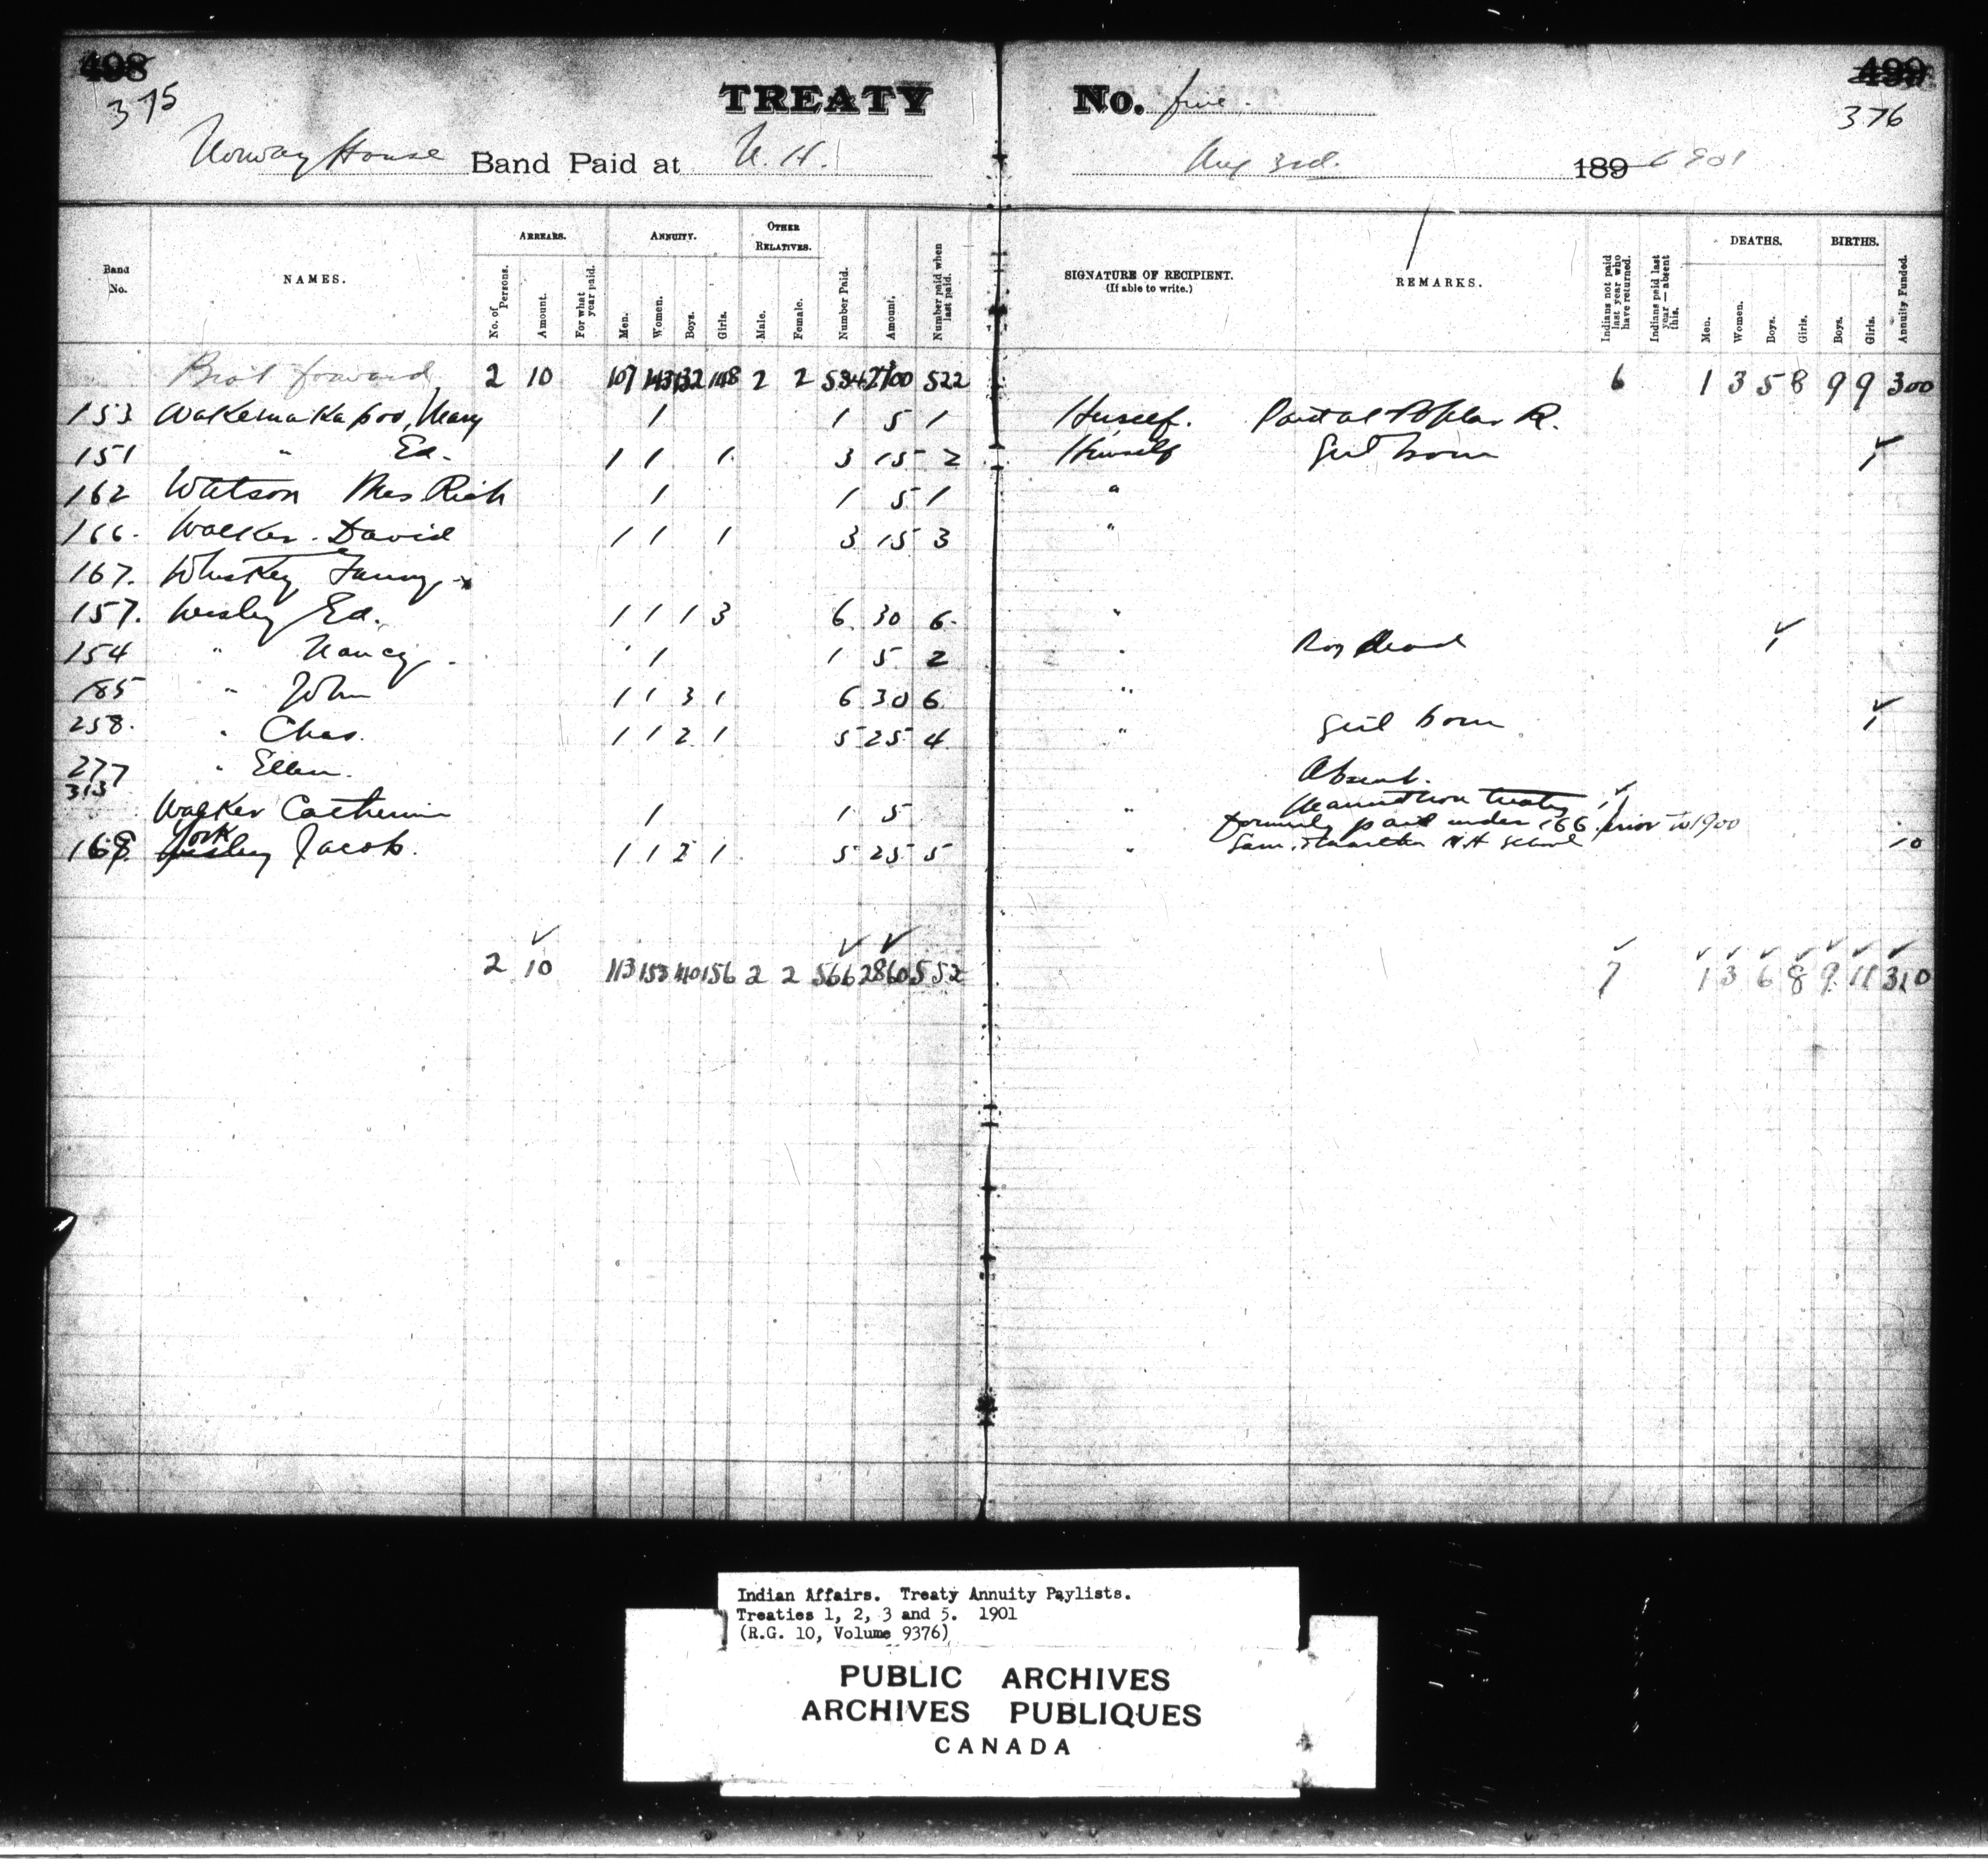 498 499
375 376
TREATY No. five.
Norway House Band Paid at N. H. Aug 3rd. 189 1901
Band No. NAMES. ARREARS. No. of Persons. Amount. For what year paid. ANNUITY. Men. Women. Boys. Girls. OTHER RELATIVES. Male. Female. Number Paid. Amount. Number paid when last paid. SIGNATURE OF RECIPIENT. (If able to write.) REMARKS. Indians not paid last year who have returned. Indians paid last year—absent this. DEATHS. Men. Women. Boys. Girls. BIRTHS. Boys. Girls. Annuity Funded.
Brot forward 2 10 107 143 132 148 2 2 534 2700 522 6 1 3 5 8 9 9 300
153 Wakemakapoo, Mary 1 1 5 1 Herself. Paid at Poplar R.
151 " Ed. 1 1 1 3 15 2 Himself Girl born 1
162 Watson Mrs Rich 1 1 5 1 "
166. Walker David 1 1 1 3 15 3 "
167. Whiskey Fanny x
157. Wesley Ed. 1 1 1 3 6 30 6 "
154 " Nancy 1 1 5 2 " Boy dead 1
185 " John 1 1 3 1 6 30 6 "
258. " Chas. 1 1 2 1 5 25 4 " Girl born 1
277 " Ellen. Absent.
313 Walker Catherine 1 1 5 " treaty 1
formerly paid under 166 prior to 1900
168. York Jacob. 1 1 2 1 5 25 5 " N.H. School 10
2 10 113 153 140 156 2 2 566 2860 552 7 1 3 6 8 9 11 310
Indian Affairs. Treaty Annuity Paylists.
Treaties 1, 2, 3 and 5. 1901
(R.G. 10, Volume 9376)
PUBLIC ARCHIVES
ARCHIVES PUBLIQUES
CANADA